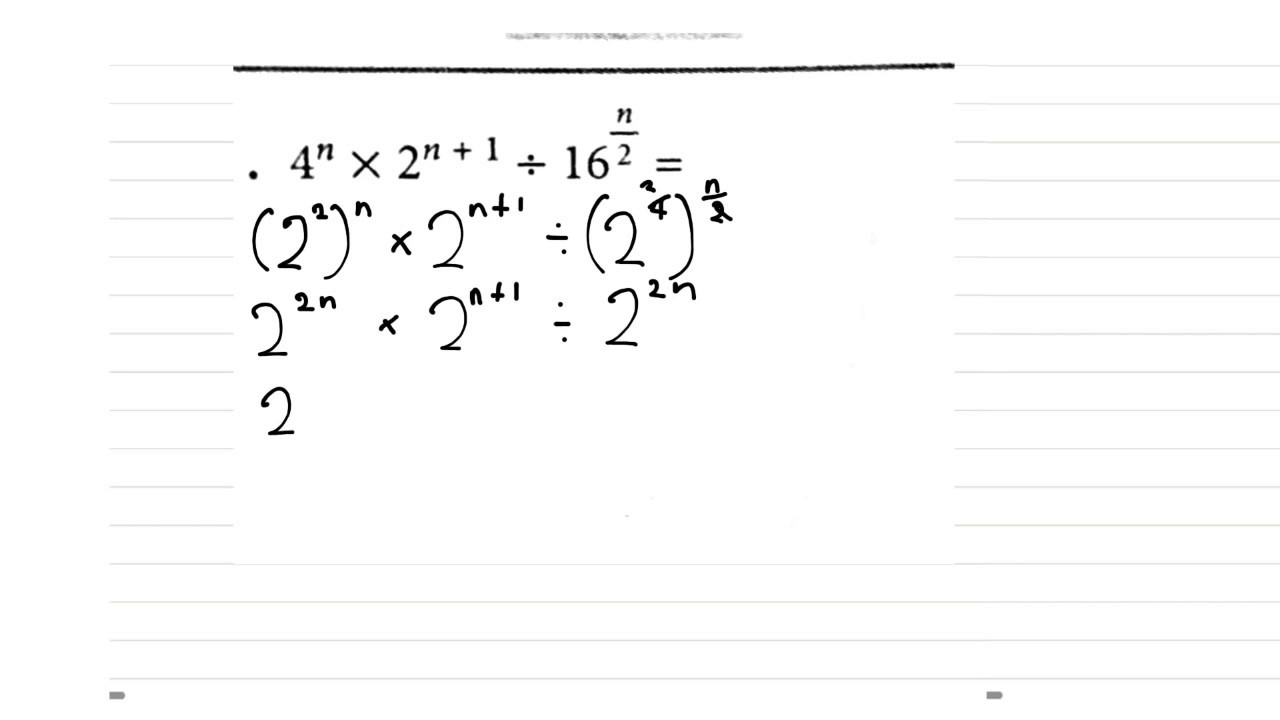 . 4ⁿ × 2ⁿ⁺¹ ÷ 16^(n/2) =
(2²)ⁿ × 2ⁿ⁺¹ ÷ (2⁴ ²)^(n/2)
2²ⁿ × 2ⁿ⁺¹ ÷ 2²ⁿ
2